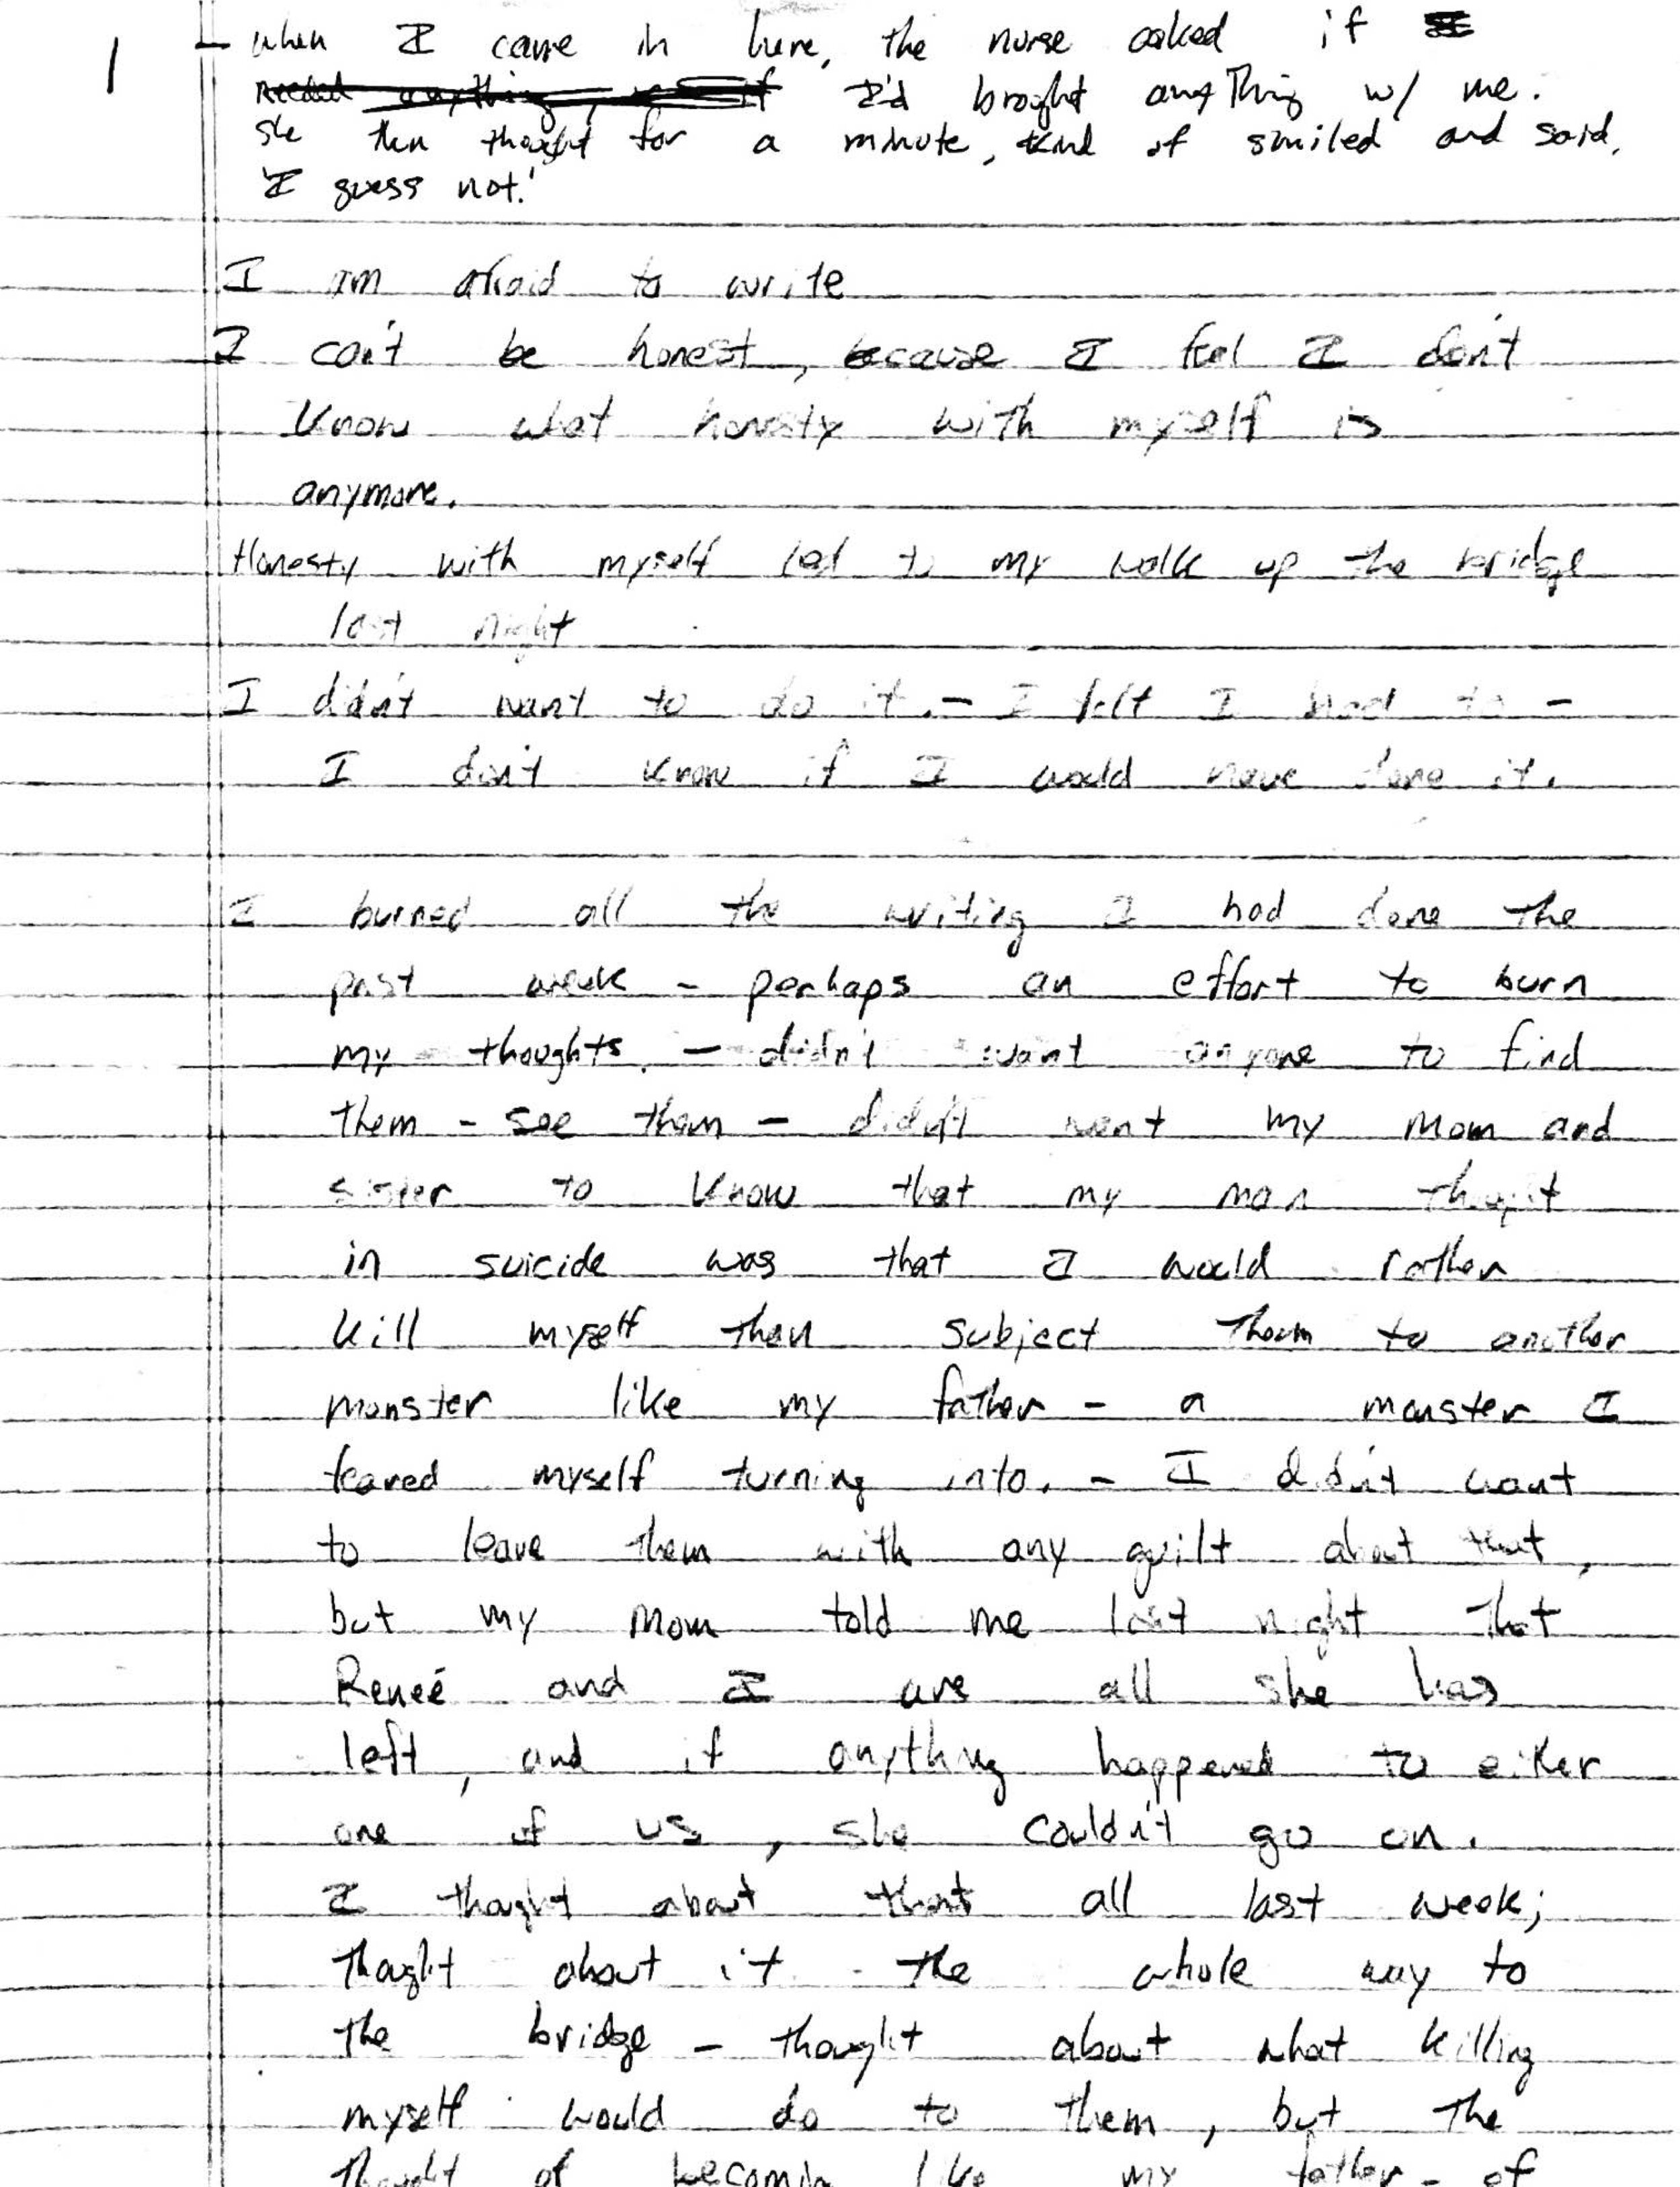 1
- when I came in here, the nurse asked if
needed anything, if I'd brought anything w/ me.
She then thought for a minute, kind of smiled and said,
'I guess not.'
I am afraid to write
I can't be honest, because I feel I don't
know what honesty with myself is
anymore.
Honesty with myself led to my walk up the bridge
last night
I didn't want to do it. - I felt I had to -
I don't know if I would have done it.
I burned all the writing I had done the
past week - perhaps an effort to burn
my thoughts. - didn't want anyone to find
them - see them - didn't want my Mom and
sister to know that my man thought
in suicide was that I would rather
kill myself than subject them to another
monster like my father - a monster I
feared myself turning into. - I didn't want
to leave them with any guilt about that,
but my Mom told me last night that
Reneé and I are all she has
left, and if anything happened to either
one of us, she couldn't go on.
I thought about that all last week;
thought about it the whole way to
the bridge - thought about what killing
myself would do to them, but the
thought of becoming like my father - of